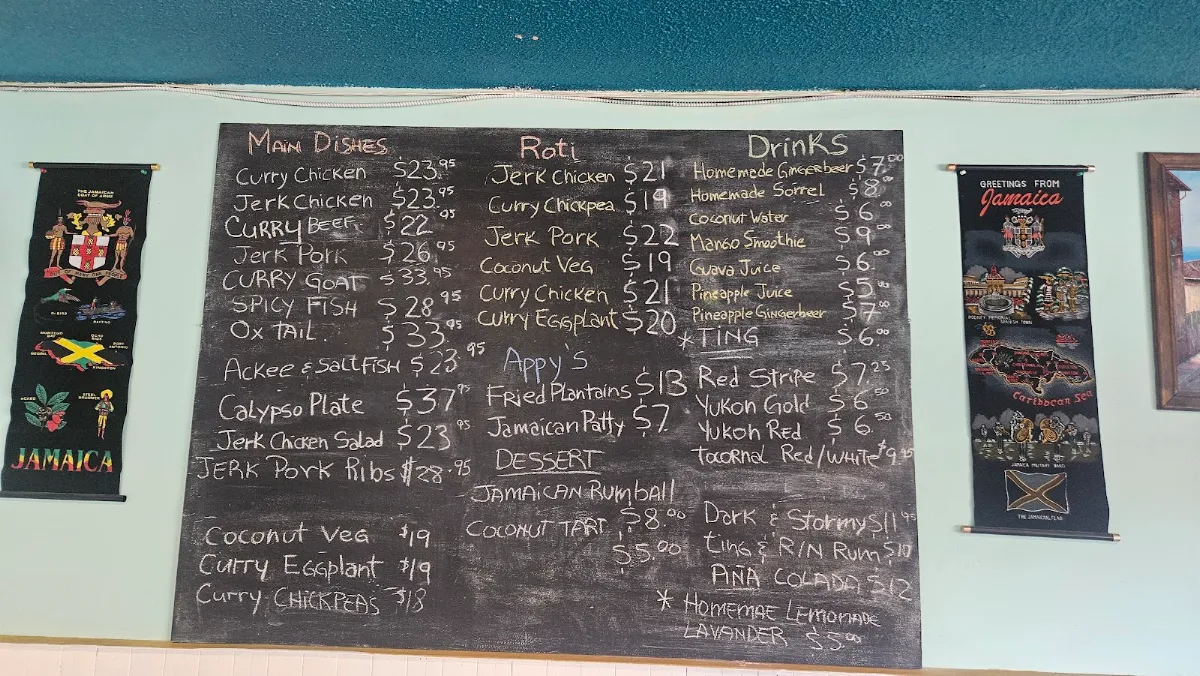 Main Dishes
Curry Chicken $23.95
Jerk Chicken $23.95
Curry Beef $22.95
Jerk Pork $26.95
Curry Goat $33.95
Spicy Fish $28.95
Ox Tail $33.95
Ackee & Saltfish $23.95
Calypso Plate $37.95
Jerk Chicken Salad $23.95
Jerk Pork Ribs $28.95
Coconut Veg $19
Curry Eggplant $19
Curry Chickpeas $18
Roti
Jerk Chicken $21
Curry Chickpea $19
Jerk Pork $22
Coconut Veg $19
Curry Chicken $21
Curry Eggplant $20
Appy's
Fried Plantains $13
Jamaican Patty $7
DESSERT
Jamaican Rumball
$8.00
Coconut Tart
$5.00
Drinks
Homemade Gingerbeer $7.00
Homemade Sorrel $8.00
Coconut Water $6.00
Mango Smoothie $9.00
Guava Juice $6.00
Pineapple Juice $5.00
Pineapple Gingerbeer $7.00
* TING $6.00
Red Stripe $7.25
Yukon Gold $6.50
Yukon Red $6.50
Tocornal Red/White $9.
Dark & Stormy $11.95
Ting & R/N Rum $10
AÑA COLADA $12
* HOMEMAE LEMONADE
LAVANDER $5.00
THE JAMAICAN
COAT OF ARMS
OUT OF MANY ONE PEOPLE
JAMAICA
GREETINGS FROM
Jamaica
SPANISH TOWN
Caribbean Sea
JAMAICA MILITARY BAND
THE JAMAICAN FLAG